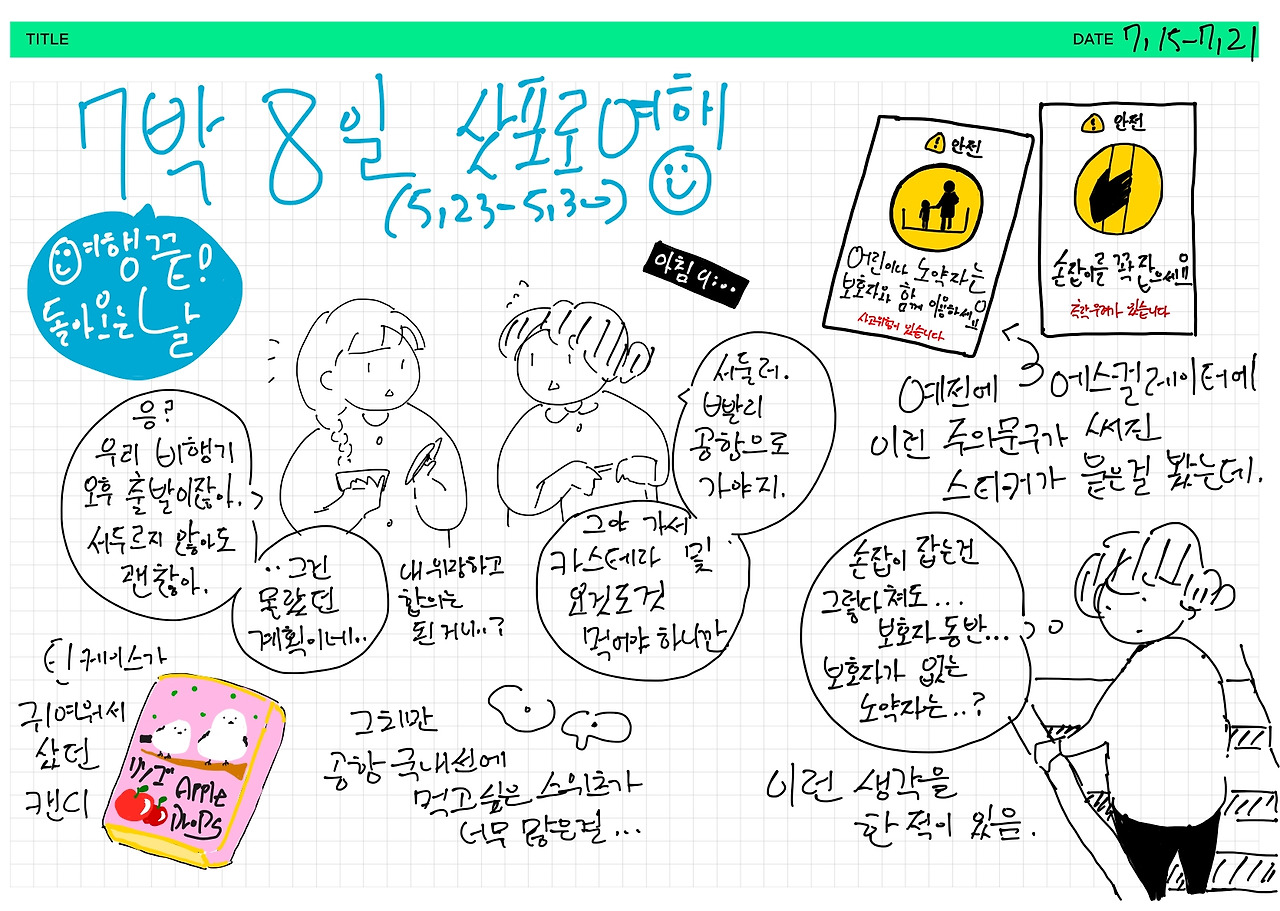 TITLE
DATE 7,15-7,21
7박 8일 삿포로여행
(5,23-5,30)
여행끝!
돌아오는
날
아침 9:..
응?
우리 비행기
오후 출발이잖아.
서두르지 않아도
괜찮아.
서둘러.
빨리
공항으로
가야지.
..그건
몰랐던
계획이네..
내 위장하고
합의는
된 거니..?
그야 가서
카스테라 및
요것도것
먹어야 하니깐
틴케이스가
귀여워서
샀던
캔디
リンゴ Apple
DROPS
그치만
공항 국내선에
먹고싶은 스위츠가
너무 많은걸...
안전
어린이나 노약자는
보호자와 함께 이용하세요!!
사고위험이 있습니다
안전
손잡이를 꼭 잡으세요!!
있습니다
예전에 에스컬레이터에
이런 주의문구가 써진
스티커가 붙은걸 봤는데.
손잡이 잡는건
그렇다쳐도...
보호자 동반...
보호자가 없는
노약자는..?
이런 생각을
한 적이 있음.